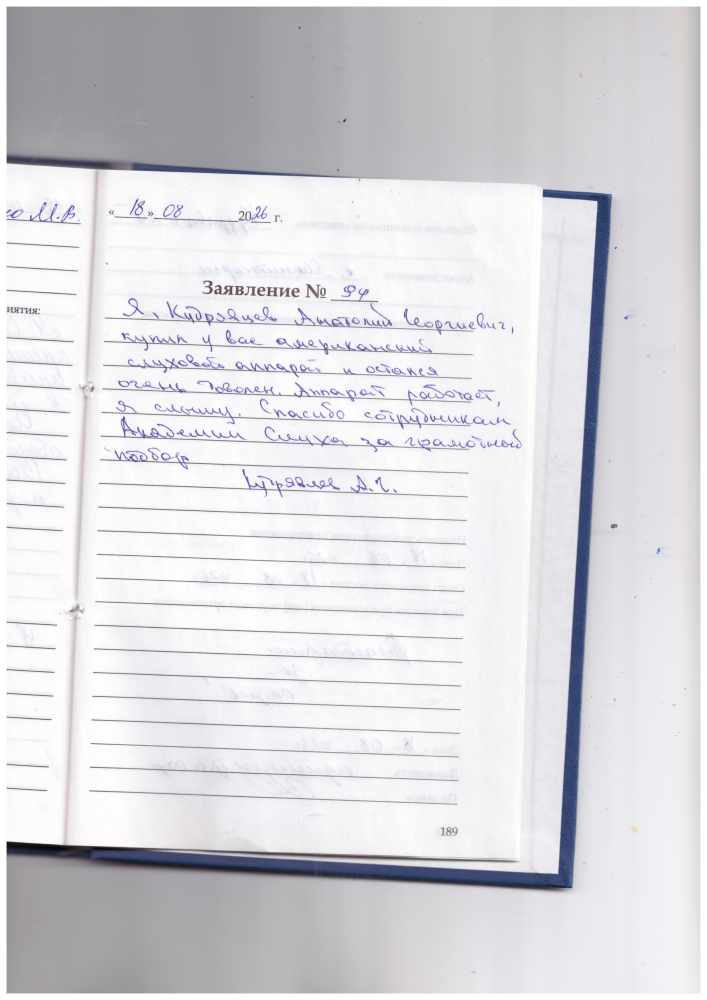 М.В.
«18» 08 2026 г.
иятия:
Заявление № 94
Я, Кудрявцев Анатолий Георгиевич,
купил у вас американский
слуховой аппарат и остался
очень доволен. Аппарат работает,
я слышу. Спасибо сотрудникам
Академии Слуха за грамотный
подбор
Кудрявцев А.Г.
189